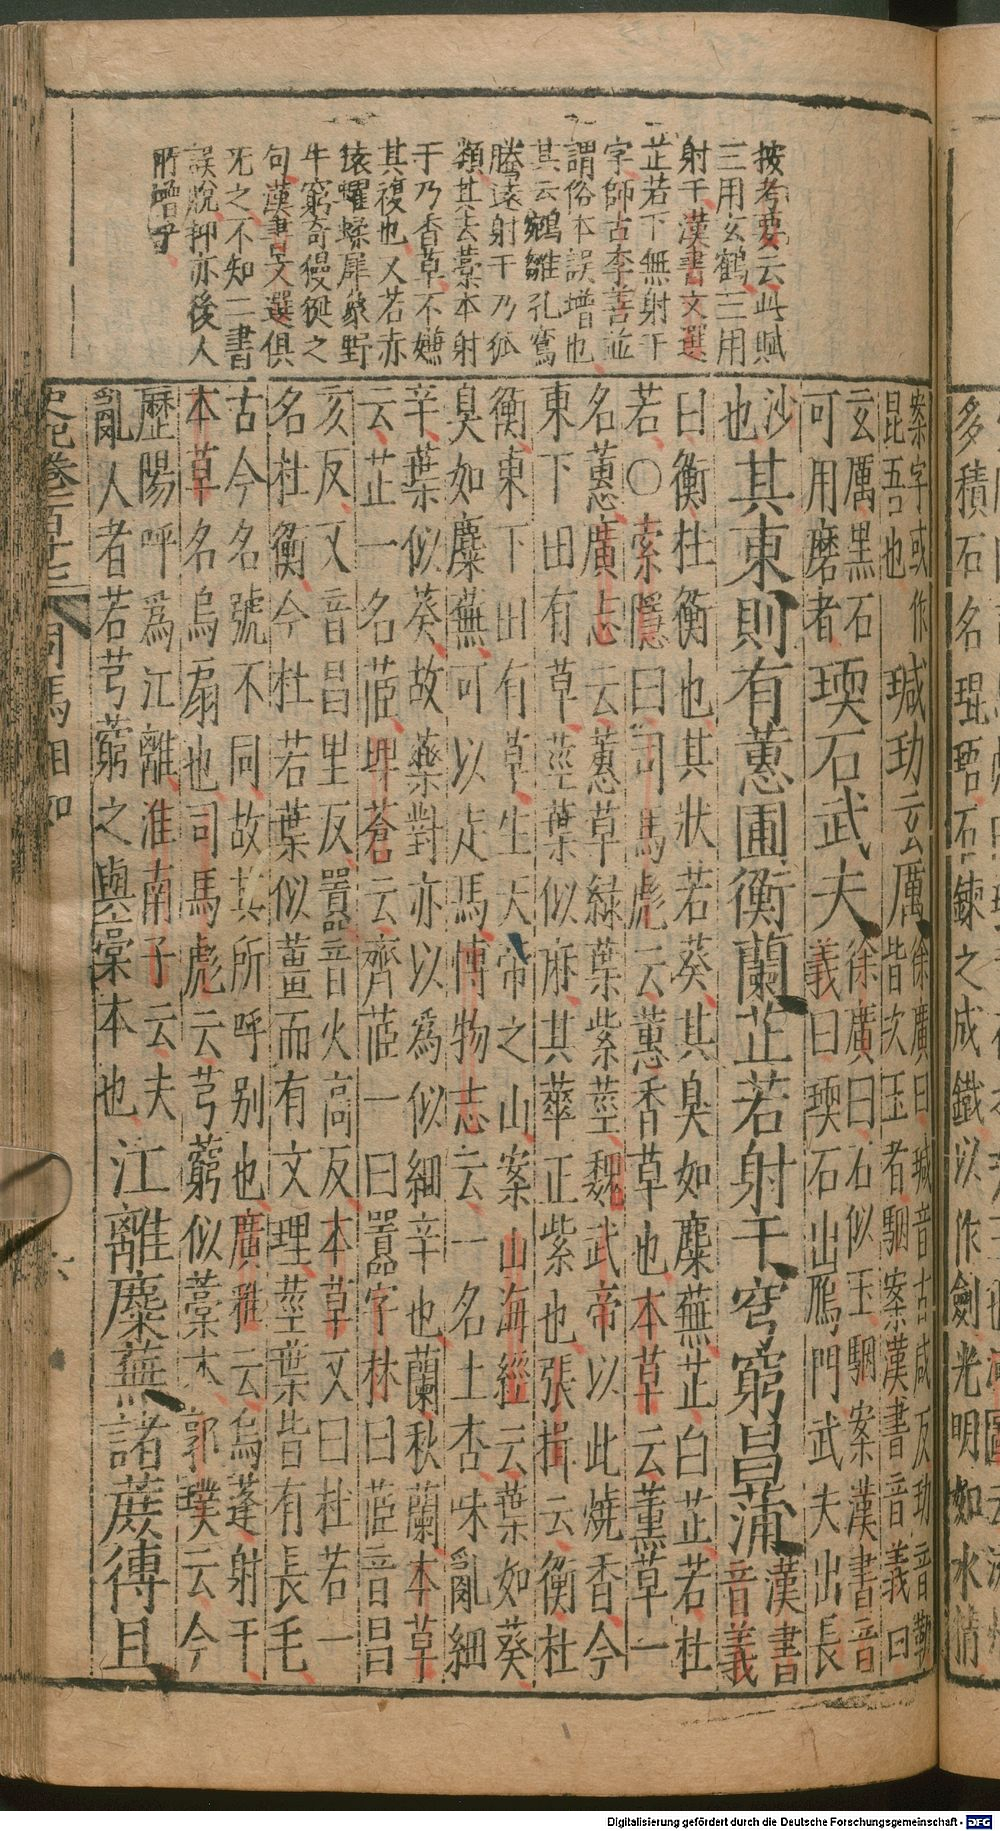 按考要云此賦
三用玄鶴二用
射干漢書文選
芷若下無射干
字師古李善並
謂俗本誤增也
其云鵷雛孔鸞
騰遠射干乃狐
類其云藁本射
干乃香草不嫌
其複也又若赤
猿蠷蝚犀象野
牛窮奇獌狿之
句漢書文選俱
无之不知二書
誤脫抑亦後人
所增乎
案字或作
昆吾也
瑊玏云厲
徐廣曰瑊音古咸反玏音勒
皆次玉者駰案漢書音義曰
玄厲黑石
可用磨者
瑌石武夫
徐廣曰石似玉駰案漢書音
義曰瑌石出鴈門武夫出長
沙
也
其東則有蕙圃衡蘭芷若射干穹窮昌蒲
漢書
音義
曰衡杜衡也其狀若葵其臭如麋蕪芷白芷若杜
若○索隱曰司馬彪云蕙香草也本草云薰草一
名蕙廣志云蕙草綠葉紫莖魏武帝以此燒香今
東下田有草莖葉似麻其華正紫也張揖云衡杜
衡東下田有草生天帝之山案山海經云葉如葵
臭如麋蕪可以走馬博物志云一名土杏味亂細
辛葉似葵故藥對亦以為似細辛也蘭秋蘭本草
云芷一名茝埤蒼云齊茝一曰囂字林曰茝音昌
亥反又音昌里反囂音火高反本草又曰杜若一
名杜衡今杜若葉似薑而有文理莖葉皆有長毛
古今名號不同故其所呼別也廣雅云烏蓬射干
本草名烏扇也司馬彪云芎藭似藁本郭璞云今
歷陽呼為江離淮南子云夫
亂人者若芎藭之與藁本也
江離麋蕪諸蔗猼且
史記卷一百十七
司馬相如
六
多積石名琨珸石鍊之成鐵以作劍光明如水精
Digitalisierung gefördert durch die Deutsche Forschungsgemeinschaft - DFG